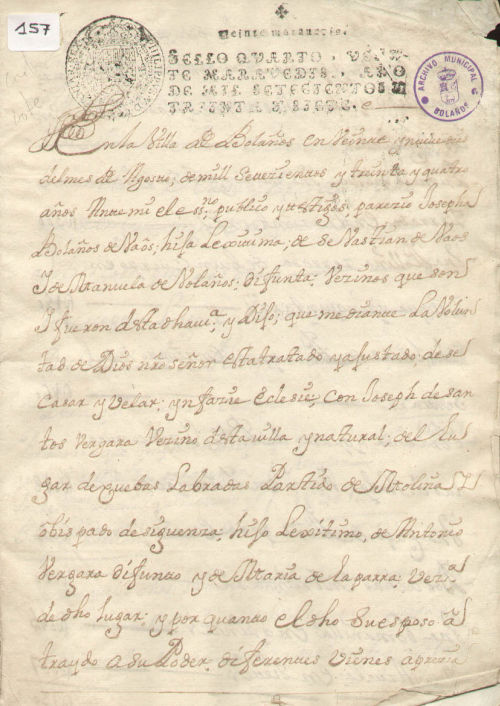 157
Veinte maravedis.
SELLO QVARTO, VEIN-
TE MARAVEDIS, AÑO
DE MIL SETECIENTOS Y
TREINTA Y SIETE.
ARCHIVO MUNICIPAL
BOLAÑOS
En la Villa de Bolaños en Veinte y nueve dias
del mes de Agosto, de mill Setezientos y treinta y quatro
años Ante mi el ess.no publico y testigos; parezio Josepha
Bolaños de Naõs; hija Lexitima; de Sevastian de Naos
I de Manuela de Bolaños; difunta; Vezinos que son
I fueron desta dha vi.a y Dijo; que mediante La Volun
tad de Dios nro señor esta tratado y ajustado; de se
Casar y Velar; yn fazie Eclesie; con Joseph de san
tos Vergara Vezino desta uilla y natural; del Lu
gar de Cuebas Labradas Partido de Molina I
obispado de siguenza, hijo Lexitimo, de Antonio
Vergara difunto y de Maria de la parra; Vez.a
de dho lugar; y por quanto el dho su esposo ã
traydo a su Poder, diferentes Vienes aprezia